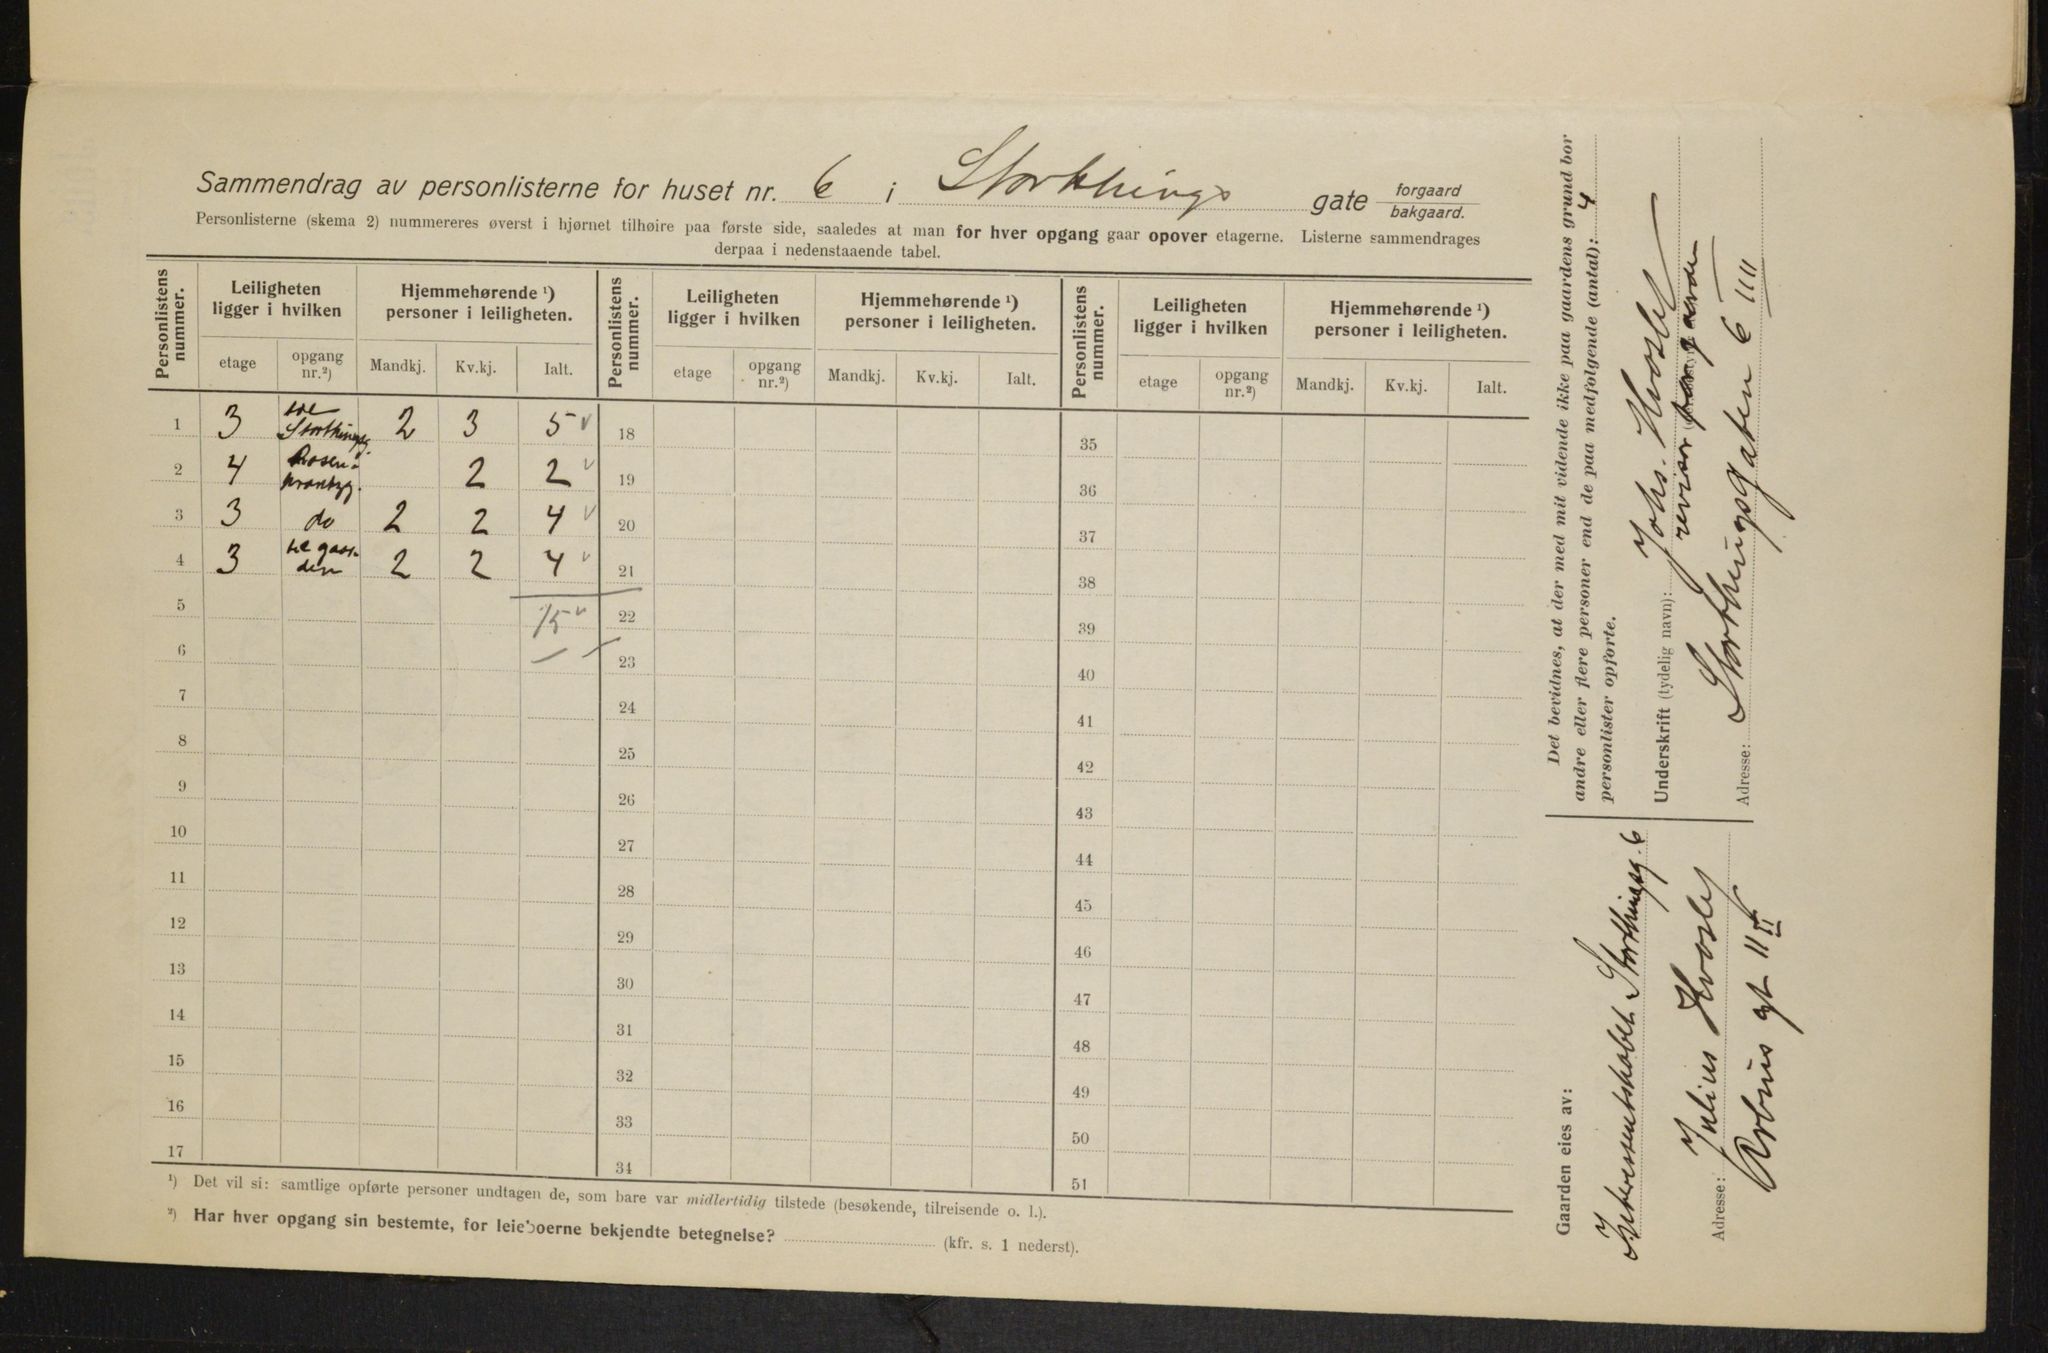 Sammendrag av personlisterne for huset nr. 6 i Storthings gate forgaard
bakgaard.
Personlisterne (skema 2) nummereres øverst i hjørnet tilhøire paa første side, saaledes at man for hver opgang gaar opover etagerne. Listerne sammendrages
derpaa i nedenstaaende tabel.
Personlistens nummer. Leiligheten ligger i hvilken Hjemmehørende ¹) personer i leiligheten. Personlistens nummer. Leiligheten ligger i hvilken Hjemmehørende ¹) personer i leiligheten. Personlistens nummer. Leiligheten ligger i hvilken Hjemmehørende ¹) personer i leiligheten.
etage opgang nr.²) Mandkj. Kv.kj. Ialt. etage opgang nr.²) Mandkj. Kv.kj. Ialt. etage opgang nr.²) Mandkj. Kv.kj. Ialt.
1 3 Storthingsg. 2 3 5 18 35
2 4 Rosenkrantzg. 2 2 19 36
3 3 do 2 2 4 20 37
4 3 gaarden 2 2 4 21 38
5 15 22 39
6 23 40
7 24 41
8 25 42
9 26 43
10 27 44
11 28 45
12 29 46
13 30 47
14 31 48
15 32 49
16 33 50
17 34 51
¹) Det vil si: samtlige opførte personer undtagen de, som bare var midlertidig tilstede (besøkende, tilreisende o. l.).
²) Har hver opgang sin bestemte, for leieboerne bekjendte betegnelse? (kfr. s. 1 nederst).
Det bevidnes, at der med mit vidende ikke paa gaardens grund bor
andre eller flere personer end de paa medfølgende (antal): 4
personlister opførte.
Underskrift (tydelig navn): Johs. Hvoslef
revisor
Adresse: Storthingsgaten 6 III
Gaarden eies av:
Interessentskabet Storthingsg. 6
Julius Hvoslef
Adresse: Arbins gt 11 II